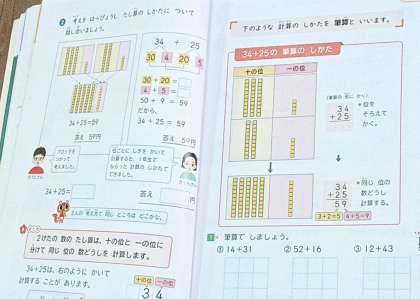 考えを はっぴょうし、たし算の しかたに ついて
話し合いましょう。
34 + 25
30 4 20 5
30+20=
4+5=
50+9=59
だから、
34+25=59
答え 59円
34+25=59
答え 59円
ブロックを
つかって
考えました。
34+25=
答え 円
2人の 考え方で 同じ ところは どこかな。
2けたの 数の たし算は、十の位と 一の位に
分けて 同じ 位の 数どうしを 計算します。
34+25は、右のように かいて
計算する ことが あります。
十の位 一の位
3 4
下のような 計算の しかたを 筆算と いいます。
34+25の 筆算の しかた
十の位 一の位
34
+25
*位を
そろえて
かく。
34
+25
59
*同じ 位の
数どうし
計算する。
3+2=5 4+5=9
1 筆算で しましょう。
① 14+31 ② 52+16 ③ 12+43